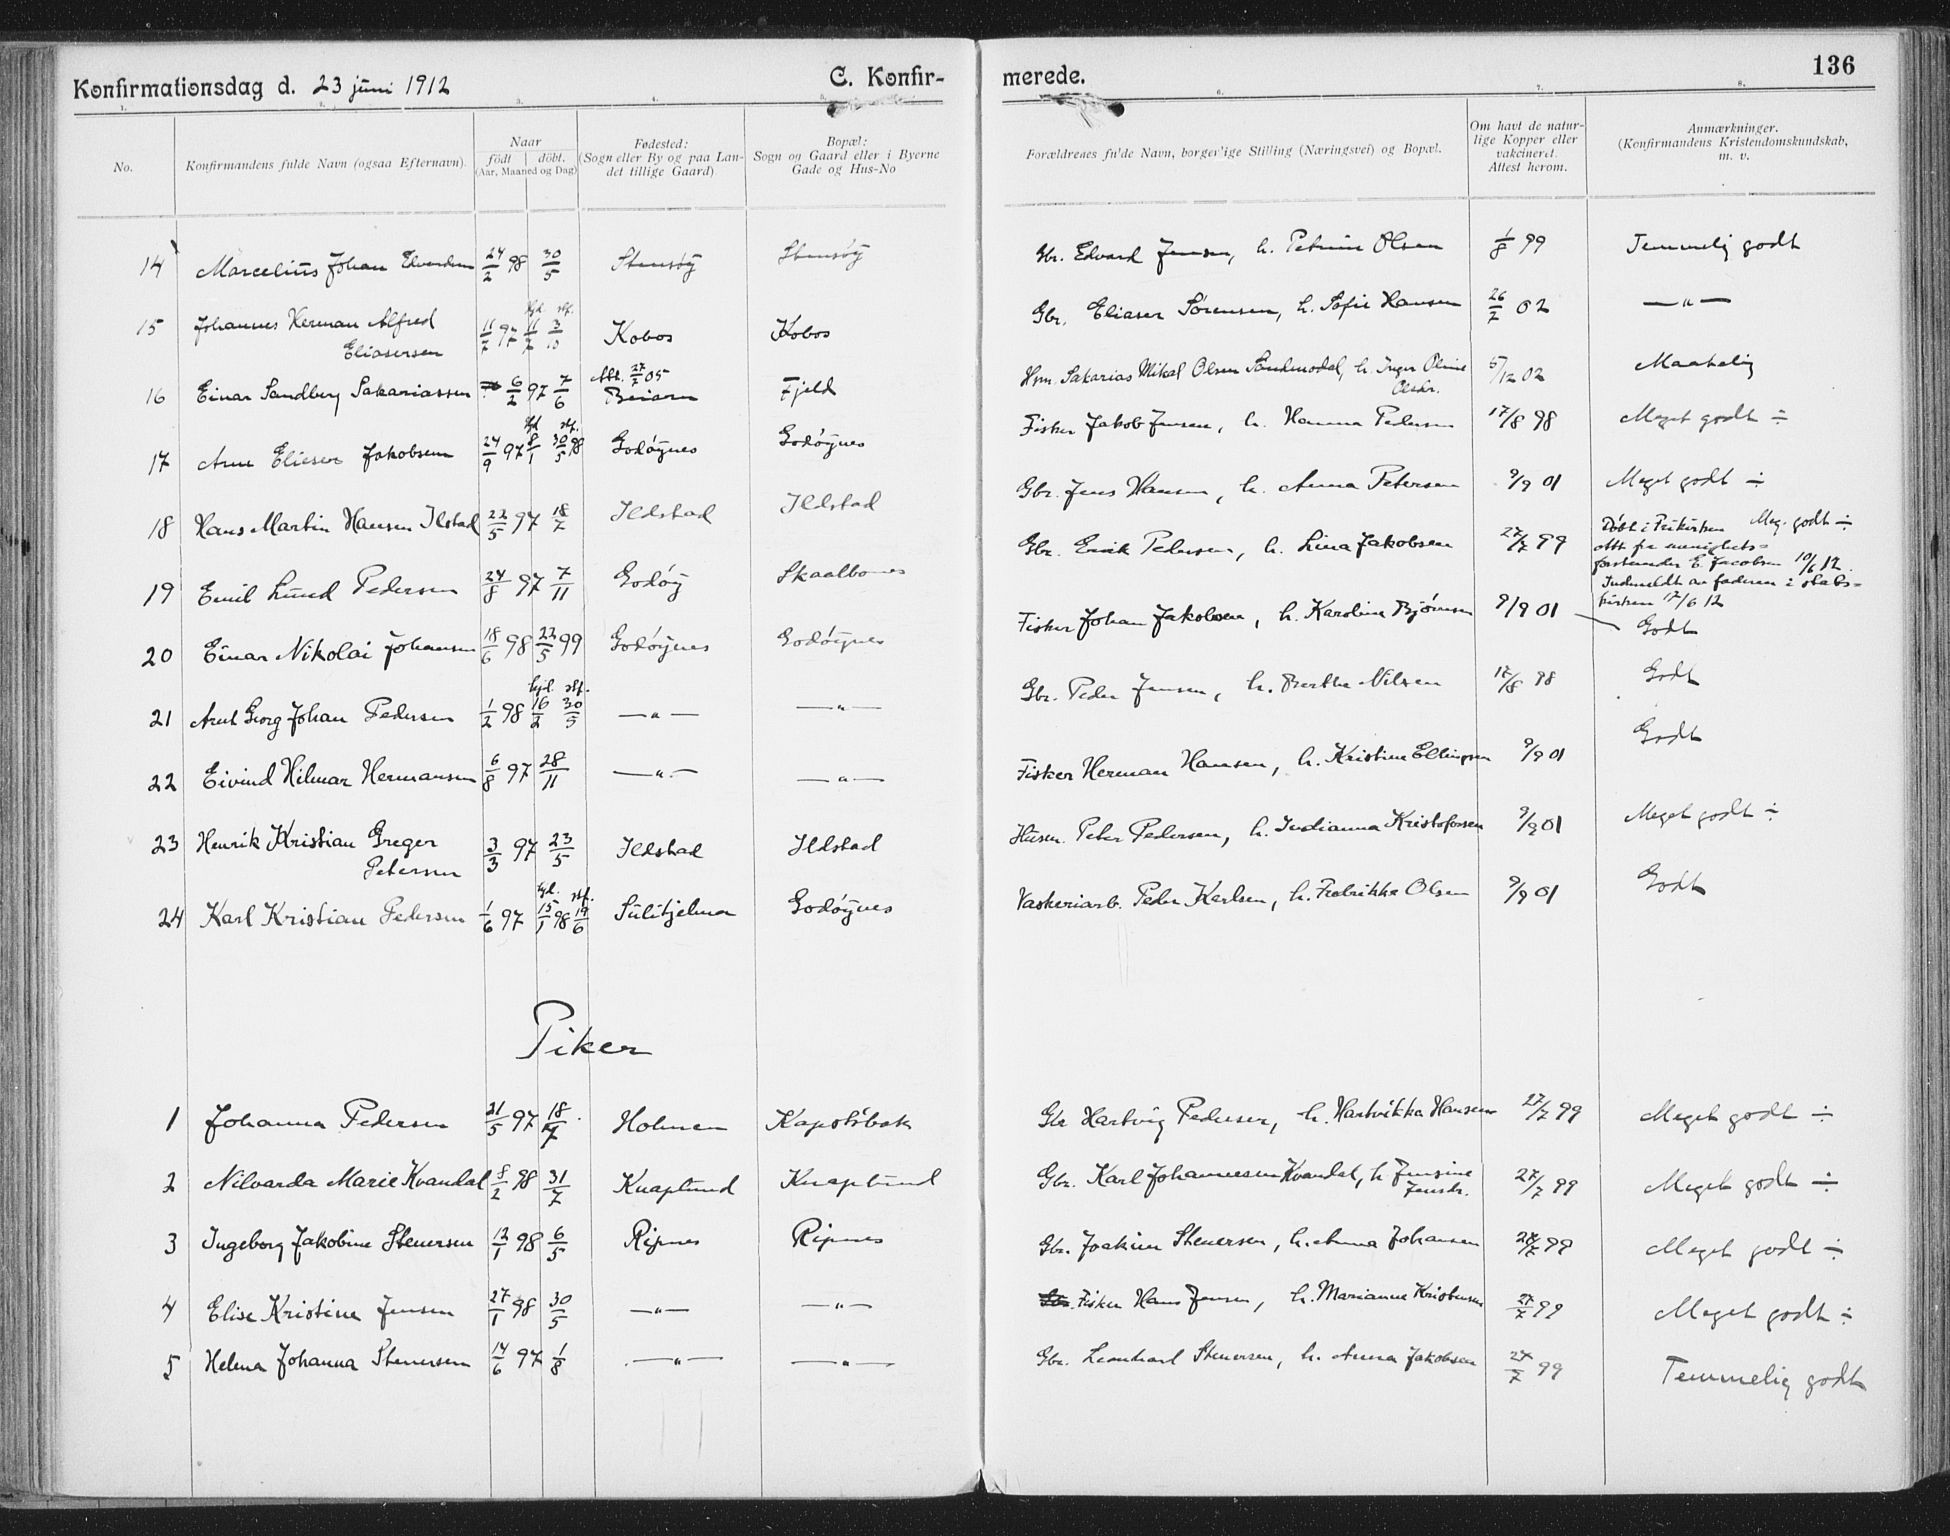 Konfirmationsdag d. 23 juni 1912
C. Konfirmerede.
136
1. 2. 3. 4. 5. 6. 7. 8.
No.
Konfirmandens fulde Navn (ogsaa Efternavn).
Naar
født | döbt.
(Aar, Maaned og Dag)
Fødested:
(Sogn eller By og paa Landet tillige Gaard)
Bopæl:
Sogn og Gaard eller i Byerne
Gade og Hus-No
Forældrenes fulde Navn, borgerlige Stilling (Næringsvei) og Bopæl.
Om havt de naturlige Kopper eller
vakcineret.
Attest herom.
Anmærkninger.
(Konfirmandens Kristendomskundskab,
m. v.
14 Marcelius Johan Edvardsen 24/2 98 30/5 Stensøy Stensøy Gbr. Edvard Jensen, h. Petrine Olsen 1/8 99 Temmelig godt
hjd. stf.
15 Johannes Herman Alfred
Eliasersen 11/7 97 11/7 3/10 Kobos Kobos Gbr. Eliaser Sørensen, h. Sofie Hansen 26/7 02 — " —
Att. 27/2 05
16 Einar Sandberg Sakariassen 6/2 97 7/6 Beiarn Fjeld Hsm. Sakarias Mikal Olsen, h. Inger Oline
Olsdr. 5/12 02 Maatelig
hjd. stf.
17 Arne Elieser Jakobsen 24/9 97 8/1 30/5 98 Godøynes Godøynes Fisker Jakob Jensen, h. Hanna Pedersen 17/8 98 Meget godt ÷
18 Hans Martin Hansen Ilstad 22/5 97 18/7 Ildstad Ildstad Gbr. Jens Hansen, h. Anna Petersen 9/9 01 Meget godt ÷
19 Emil Lund Pedersen 24/8 97 7/11 Godøy Skaalbones Gbr. Enok Pedersen, h. Lina Jakobsen 27/7 99 Døbt i Frikirken Meg. godt ÷
att. fra menighets=
forstander E. Jacobsen 10/6 12.
Indmeldt av faderen i stats=
kirken 17/6 12
20 Einar Nikolai Johansen 18/6 98 22/5 99 Godøynes Godøynes Fisker Johan Jakobsen, h. Karoline Bjørnsen 9/9 01 — Godt
hjd. stf.
21 Arnt Georg Johan Pedersen 1/2 98 16/2 30/5 — " — — " — Gbr. Peder Jensen, h. Berthe Nilsen 17/8 98 Godt
22 Eivind Hilmar Hermansen 6/8 97 28/11 — " — — " — Fisker Herman Hansen, h. Kristine Ellingsen 9/9 01 Godt
23 Henrik Kristian Greger
Petersen 3/3 97 23/5 Ildstad Ildstad Husm. Peter Pedersen, h. Indianna Kristofersen 9/9 01 Meget godt ÷
hjd. stf.
24 Karl Kristian Pedersen 1/6 97 15/1 98 19/6 Sulitjelma Godøynes Vaskeriarb. Peder Karlsen, h. Fredrikka Olsen 9/9 01 Godt
Piker
1 Johanna Pedersen 21/5 97 18/7 Holmen Kapstøbak Gbr Hartvig Pedersen, h. Hartvikka Hansen 27/7 99 Meget godt ÷
2 Nilvarda Marie Kvandal 8/2 98 31/7 Knaplund Knaplund Gbr. Karl Johannesen Kvandal, h. Jensine
Jensdr. 27/7 99 Meget godt ÷
3 Ingeborg Jakobine Steuersen 12/1 98 6/5 Ripnes Ripnes Gbr. Joakim Steuersen, h. Anna Johansen 27/7 99 Meget godt ÷
4 Elise Kristine Jensen 27/1 98 30/5 — " — — " — Fisker Hans Jensen, h. Marianne Kristensen 27/7 99 Meget godt ÷
5 Helena Johanna Steuersen 14/6 97 1/8 — " — — " — Gbr. Leonhard Steuersen, h. Anna Jakobsen 27/7 99 Temmelig godt